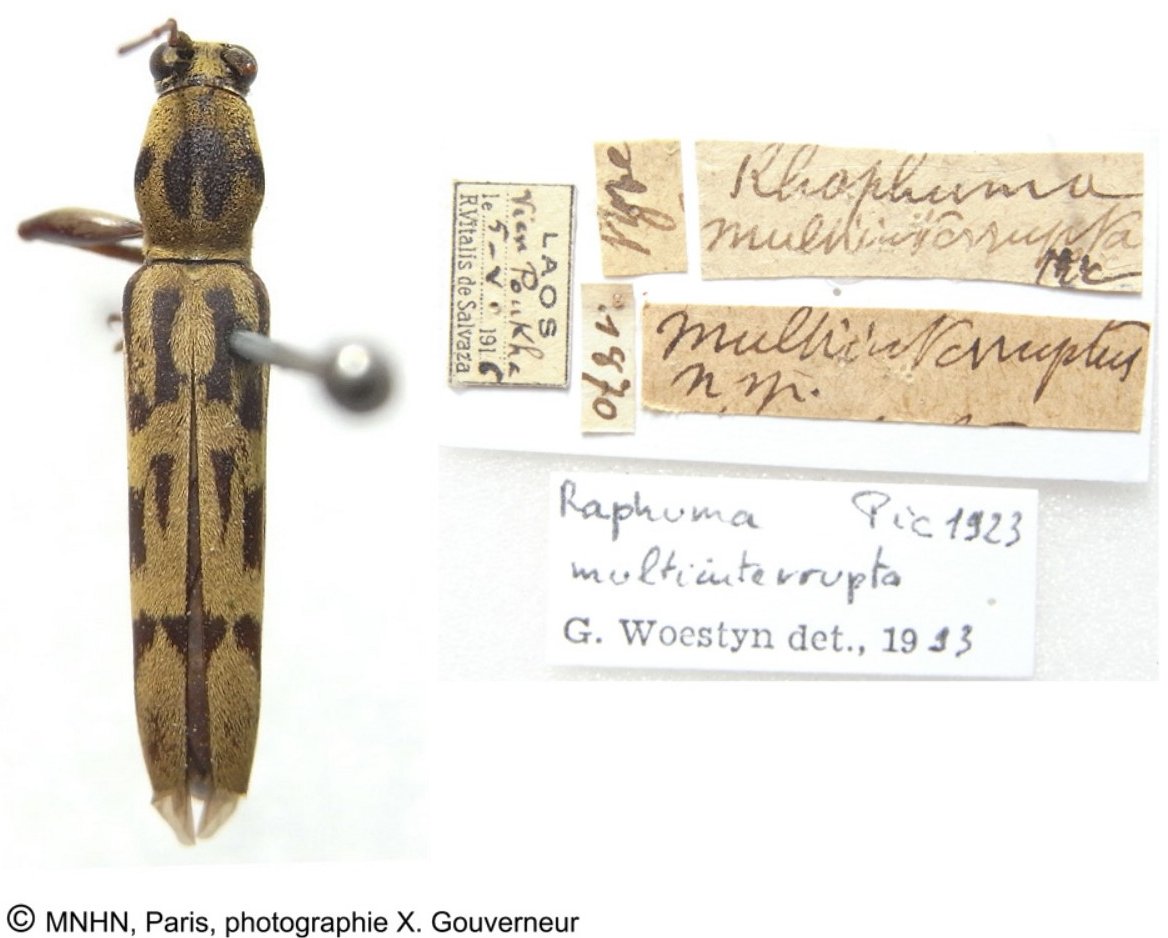 LAOS
Vien Poukha
le 5-V 1916
R.Vitalis de Salvaza
Rhaphuma
multiinterrupta
Pic
multiinterruptus
n. sp.
Raphuma Pic 1923
multiinterrupta
G. Woestyn det., 1993
© MNHN, Paris, photographie X. Gouverneur